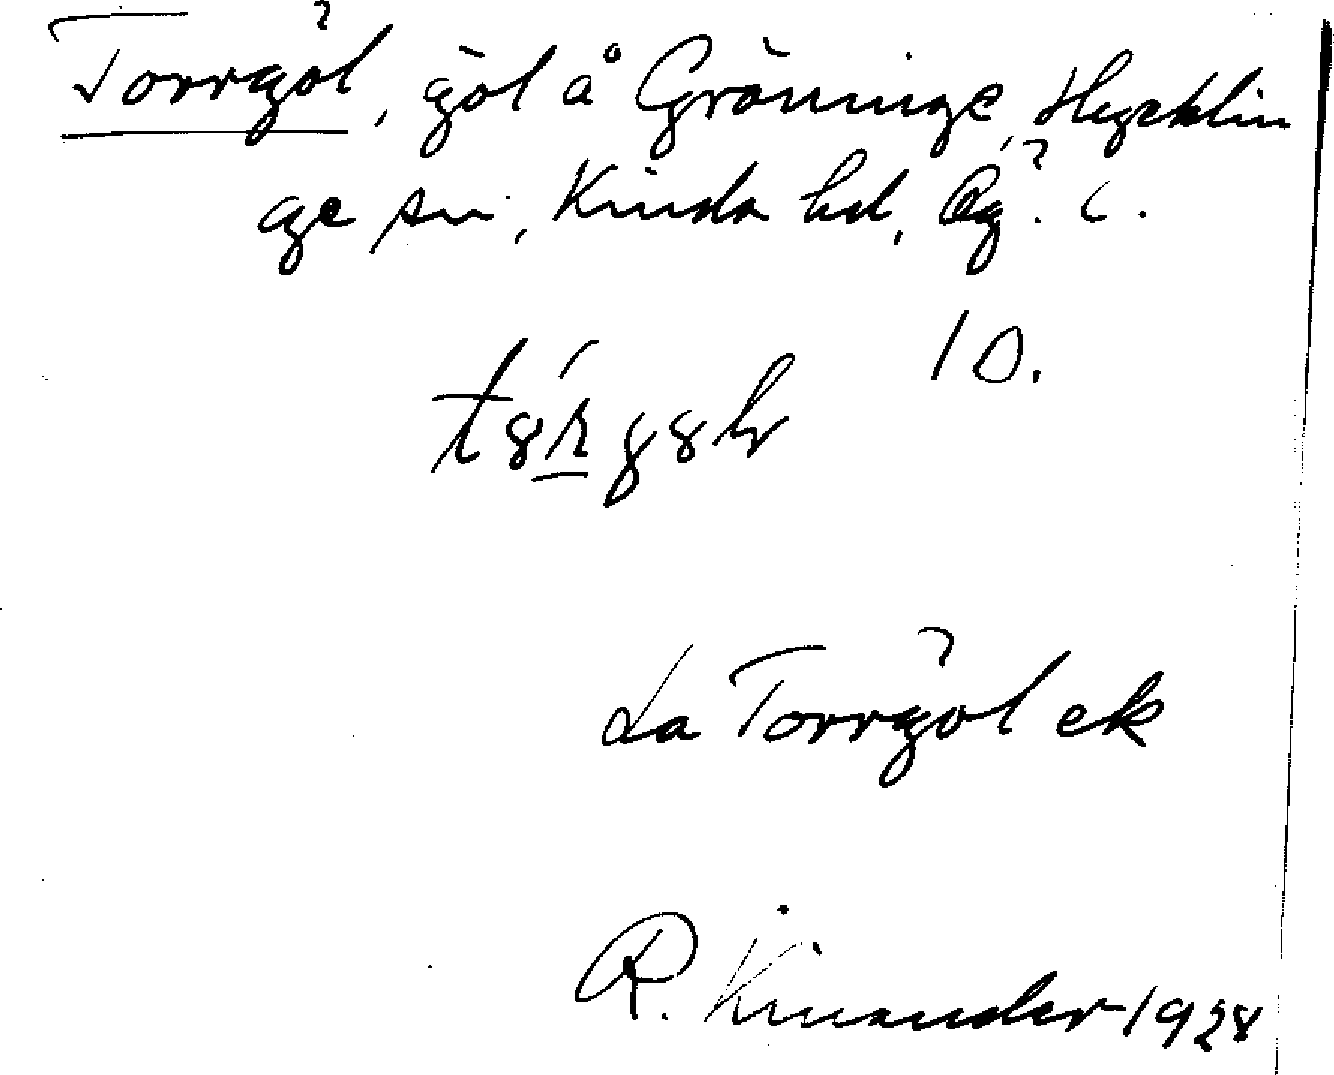 Torrgöl, göl å Gröninge, Hycklin
ge sn, Kinda hd, Ög. L.
10.
La Torrgöl ek
R. Kinander 1928